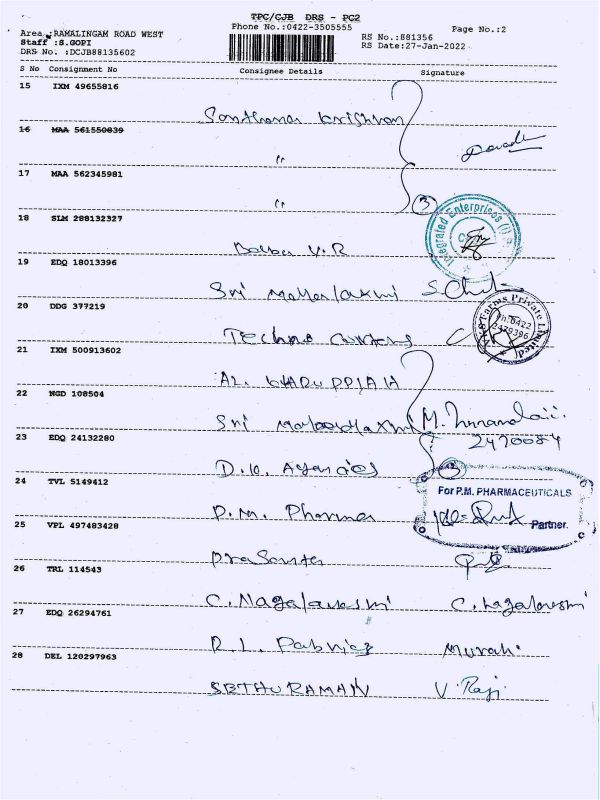 TPC/CJB DRS - PC2
Phone No.:0422-3505555
Page No.:2
Area :RAMALINGAM ROAD WEST
Staff :S.GOPI
RS No.:881356
DRS No. :DCJB88135602
RS Date:27-Jan-2022
S No Consignment No Consignee Details Signature
15 IXM 49655816
Santhana Krishnan
16 MAA 561550839
"
17 MAA 562345981
" 3
18 SLM 288132327
V.R
Integrated Enterprises (I)
19 EDQ 18013396
Sri Mahalaxmi
20 DDG 377219
Farms Private Limited
Ph:0422
2479396
Techno
21 IXM 500913602
AL. KARUPPIAH
22 NGD 108504
Sri Mahalaxmi M.
2470084
23 EDQ 24132280
D.K. Agencies 3
24 TVL 5149412
For P.M. PHARMACEUTICALS
P.M. Pharma
Partner.
25 VPL 497483428
Prasanth
26 TRL 114543
C. Nagalakshmi C. Nagalakshmi
27 EDQ 26294761
R.L. Fabrics Murali
28 DEL 120297963
SETHURAMAN V. Raji